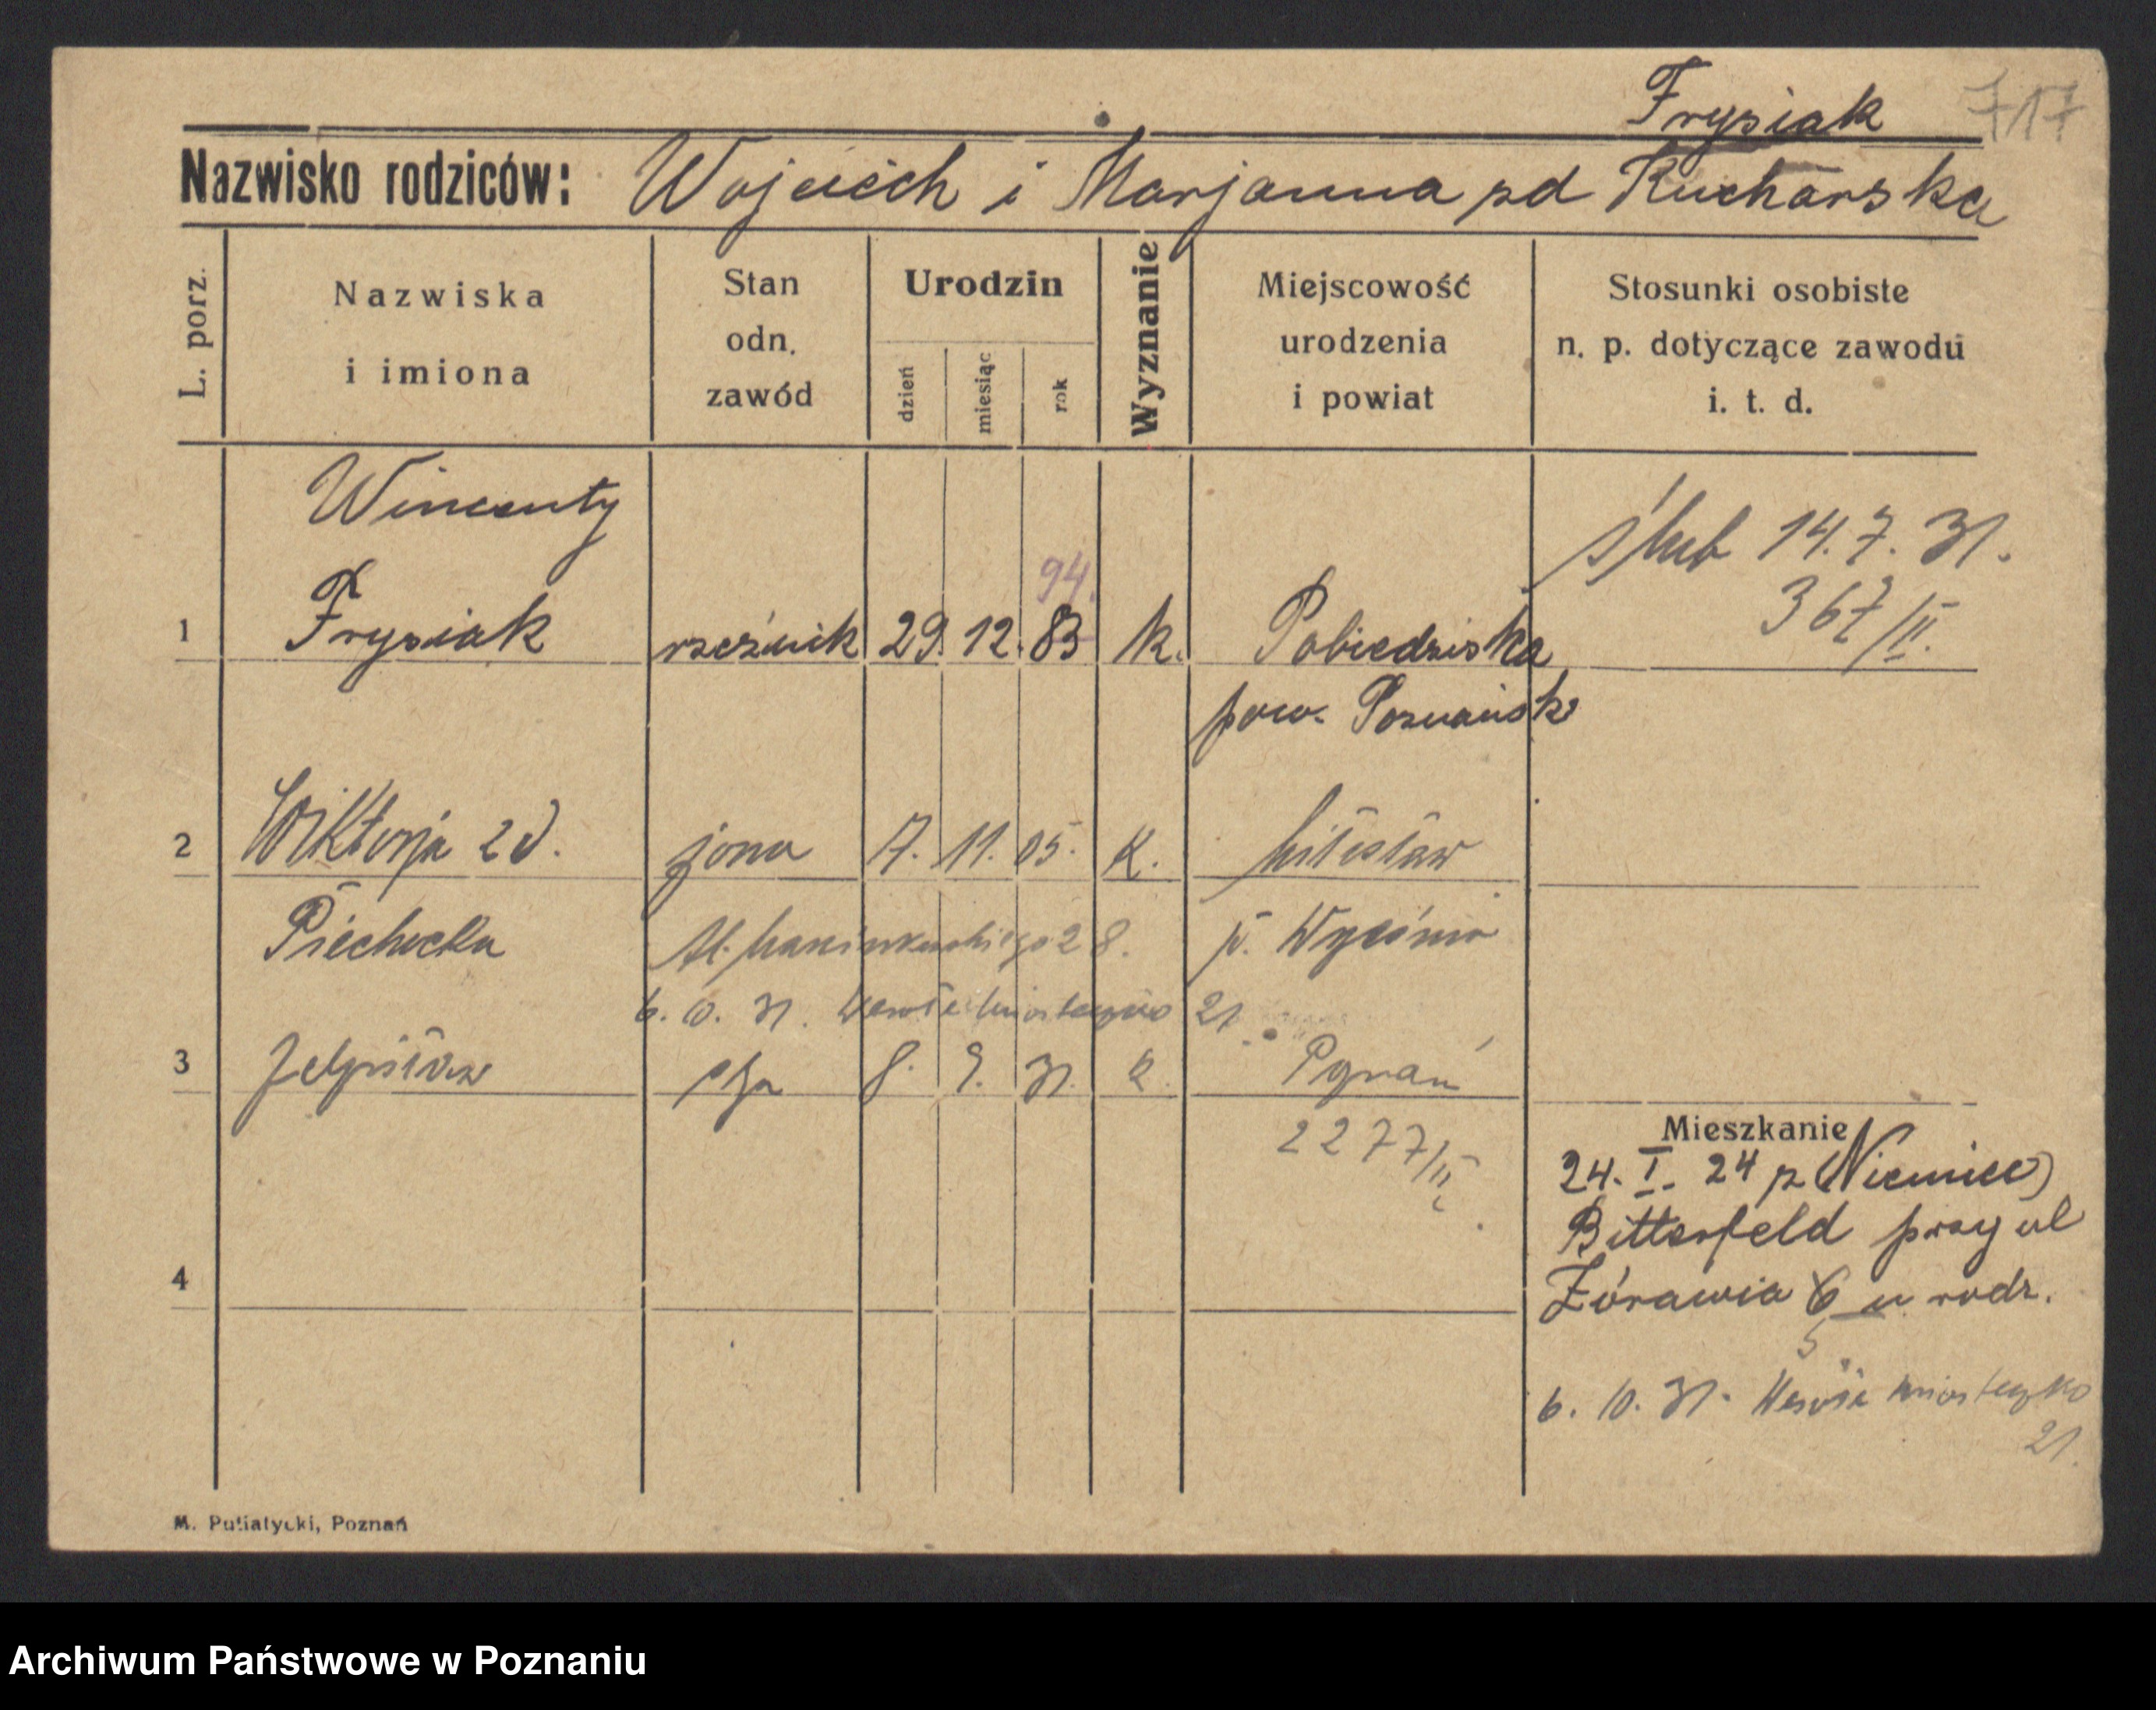 Frysiak 717
Nazwisko rodziców: Wojciech i Marjanna zd Kucharska
L. porz.
Nazwiska
i imiona
Stan
odn.
zawód
Urodzin
dzień
miesiąc
rok
Wyznanie
Miejscowość
urodzenia
i powiat
Stosunki osobiste
n. p. dotyczące zawodu
i. t. d.
Wincenty
ślub 14. 7. 31.
94.
367/II.
1 Frysiak rzeźnik 29. 12. 83 k. Pobiedziska
pow. Poznańsk
2 Wiktorja zd. żona 17. 11. 05. k.
Piechocka 28. p.
6. 10. 31. Wesołe miasteczko 21.
3 8. 9. 31. k. Poznań
2277/II
Mieszkanie
24. I. 24 z (Niemiec)
Bitterfeld przy ul
Żórawia 6 u rodz.
5
4
6. 10. 31. Wesołe miasteczko
21.
M. Putiatycki, Poznań
Archiwum Państwowe w Poznaniu